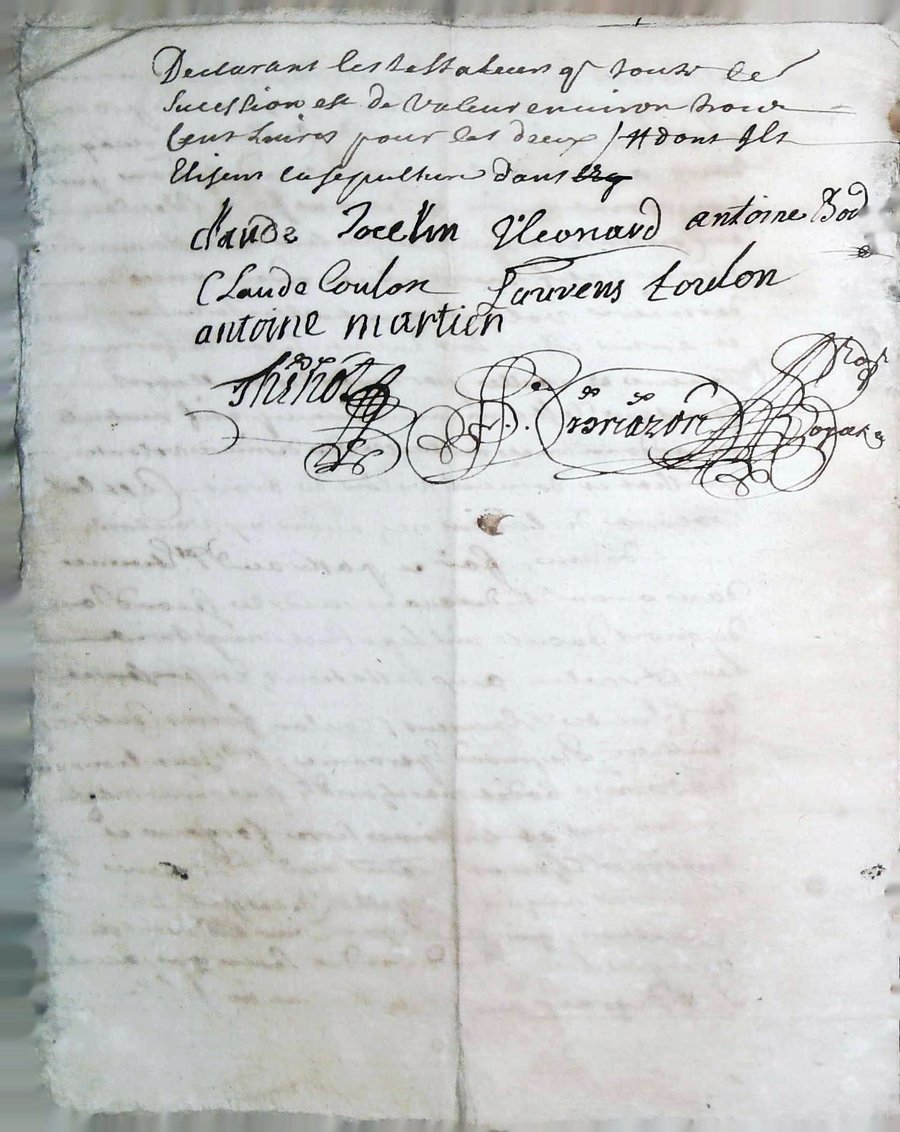 Declarant les testateurs q^e toute le^r
Sucession est de valeur environ trois
Cent Livres pour les deux /# dont Ils
Elisent la sepulture dans
claude Jocelin Vleonard antoine Bod
CLaude Coulon Laurens toulon
antoine martien
Thinot